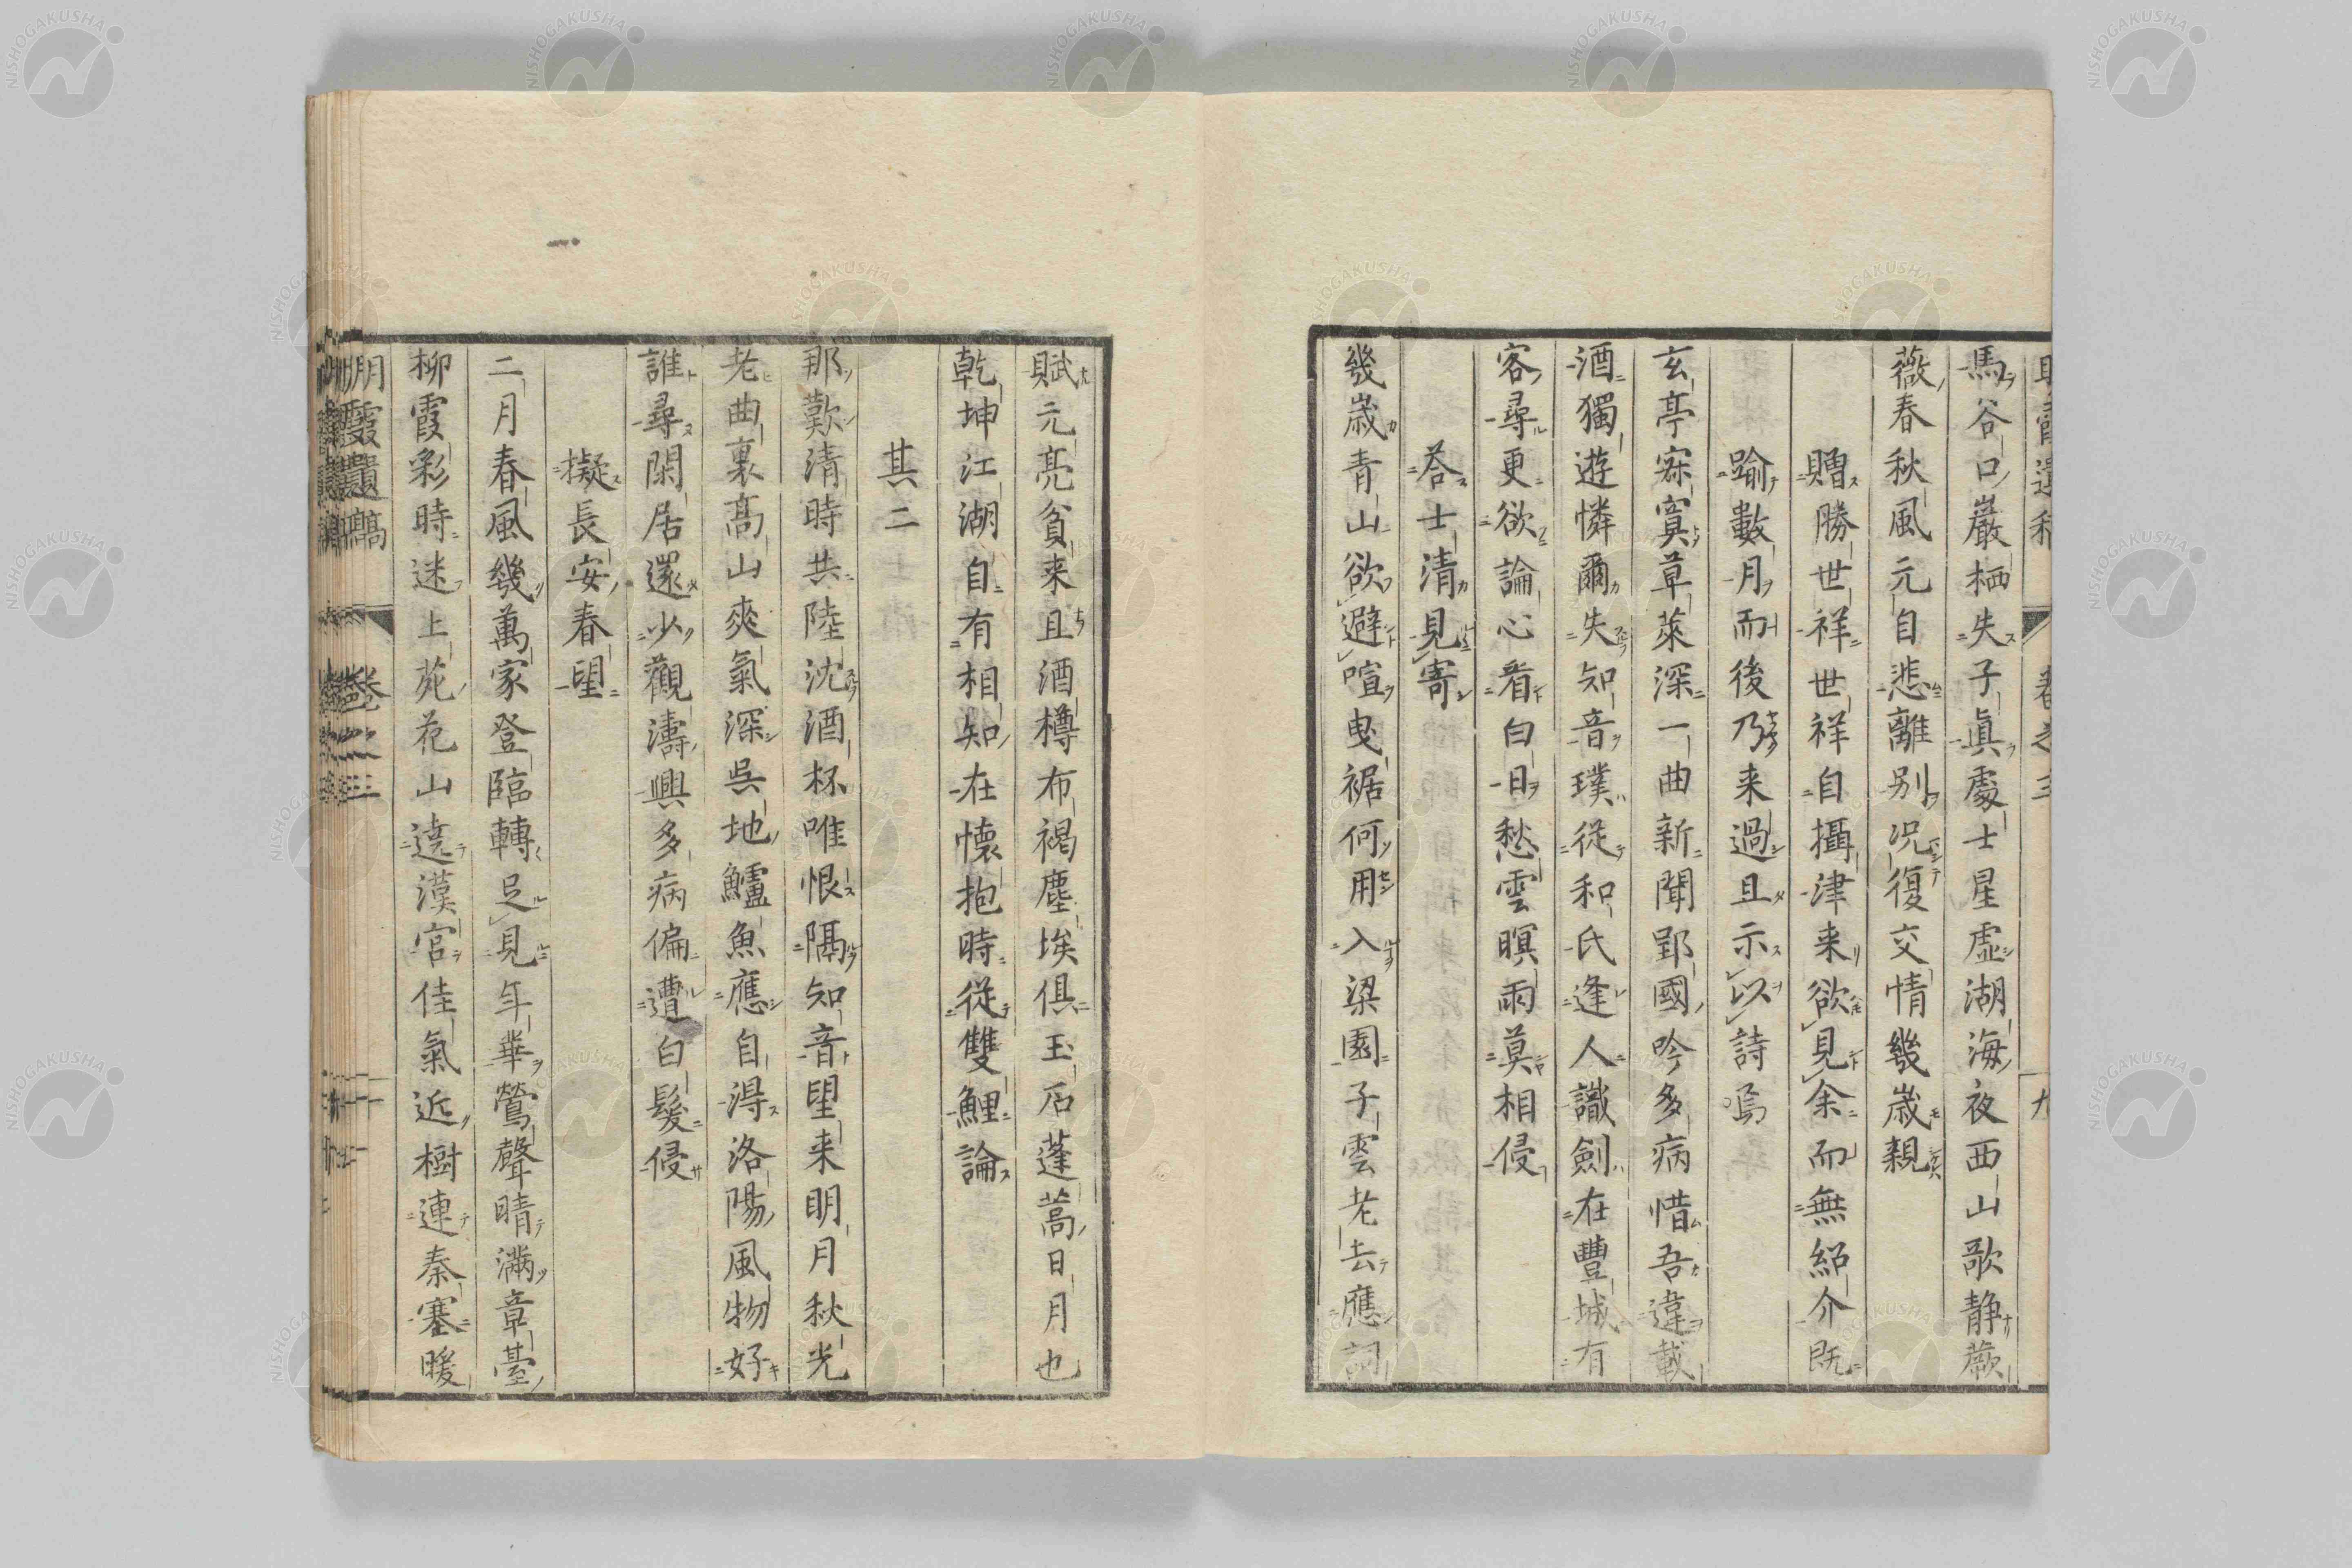 馬谷口巖栖失子眞處士星虛湖海夜西山歌静蕨
薇春秋風元自悲離别况復交情幾歳親
贈勝世祥世祥自攝津来欲見余而無紹介既
踰數月而後乃来過且示以詩焉
玄亭寂寞草萊深一曲新聞郢國吟多病惜吾違載
酒獨遊憐爾失知音璞從和氏逢人識劍在豐城有
客尋更欲論心看白日愁雲暝雨莫相侵
荅士清見寄
幾歳青山欲避喧曳裾何用入梁園子雲老去應詞
賦元亮貧来且酒樽布褐塵埃倶玉石蓬蒿日月也
乾坤江湖自有相知在懐抱時從雙鯉論
其二
那歎清時共陸沈酒杯唯恨隔知音望来明月秋光
老曲裏高山爽氣深呉地鱸魚應自得洛陽風物好
誰尋閑居還少觀濤興多病偏遭白髮侵
擬長安春望
二月春風幾萬家登臨轉足見年華鶯聲晴滿章臺
柳霞彩時迷上苑花山遶漢宮佳氣近樹連秦塞暖
卷之三
NISHOGAKUSHA